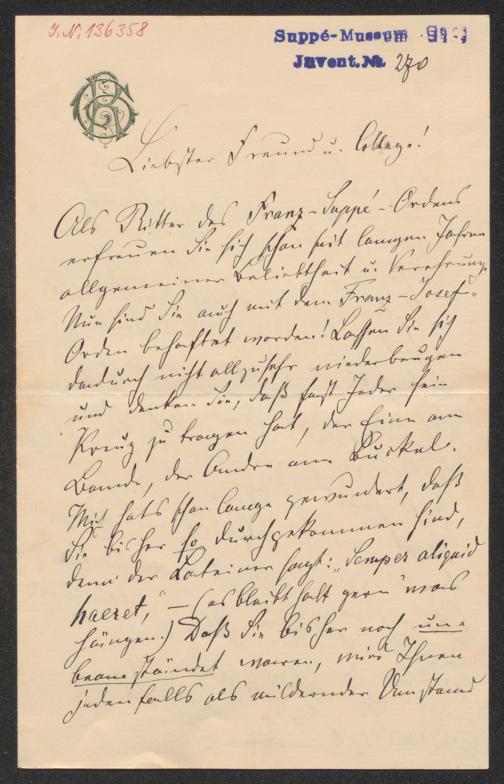 I.N. 136358
Suppé-Museum
Invent. No. 270
Liebster Freund u. College!
Als Ritter des Franz-Suppé-Ordens
erfreuen Sie sich schon seit langen Jahren
allgemeiner Beliebtheit u. Verehrung.
Nun sind Sie auch mit dem Franz-Josef-
Orden behaftet worden! Lassen Sie sich
dadurch nicht allzusehr niederbeugen
und denken Sie, daß fast Jeder sein
Kreuz zu tragen hat, der Eine am
Bande, der Andre am Buckel.
Mich hats schon lange gewundert, daß
Sie bisher so durchgekommen sind,
denn der Lateiner sagt: „Semper aliquid
haeret," – (es bleibt halt gern was
hängen.) Daß Sie bisher noch un-
beanständet waren, wird Ihnen
jedenfalls als mildernder Umstand